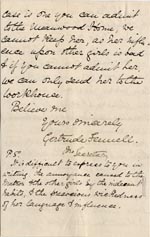 case is one you can admit
to the Meanwood Home, we
cannot keep her, as her influ-
ence upon other girls is bad
& if you cannot admit her
we can only send her to the
workhouse.
Believe me
Yours sincerely
Gertrude
Secretary
P.S.
It is difficult to express to you in
writing the annoyance caused to the
matron & the other girls by the
habits, & the wickedness
of her language & influence.